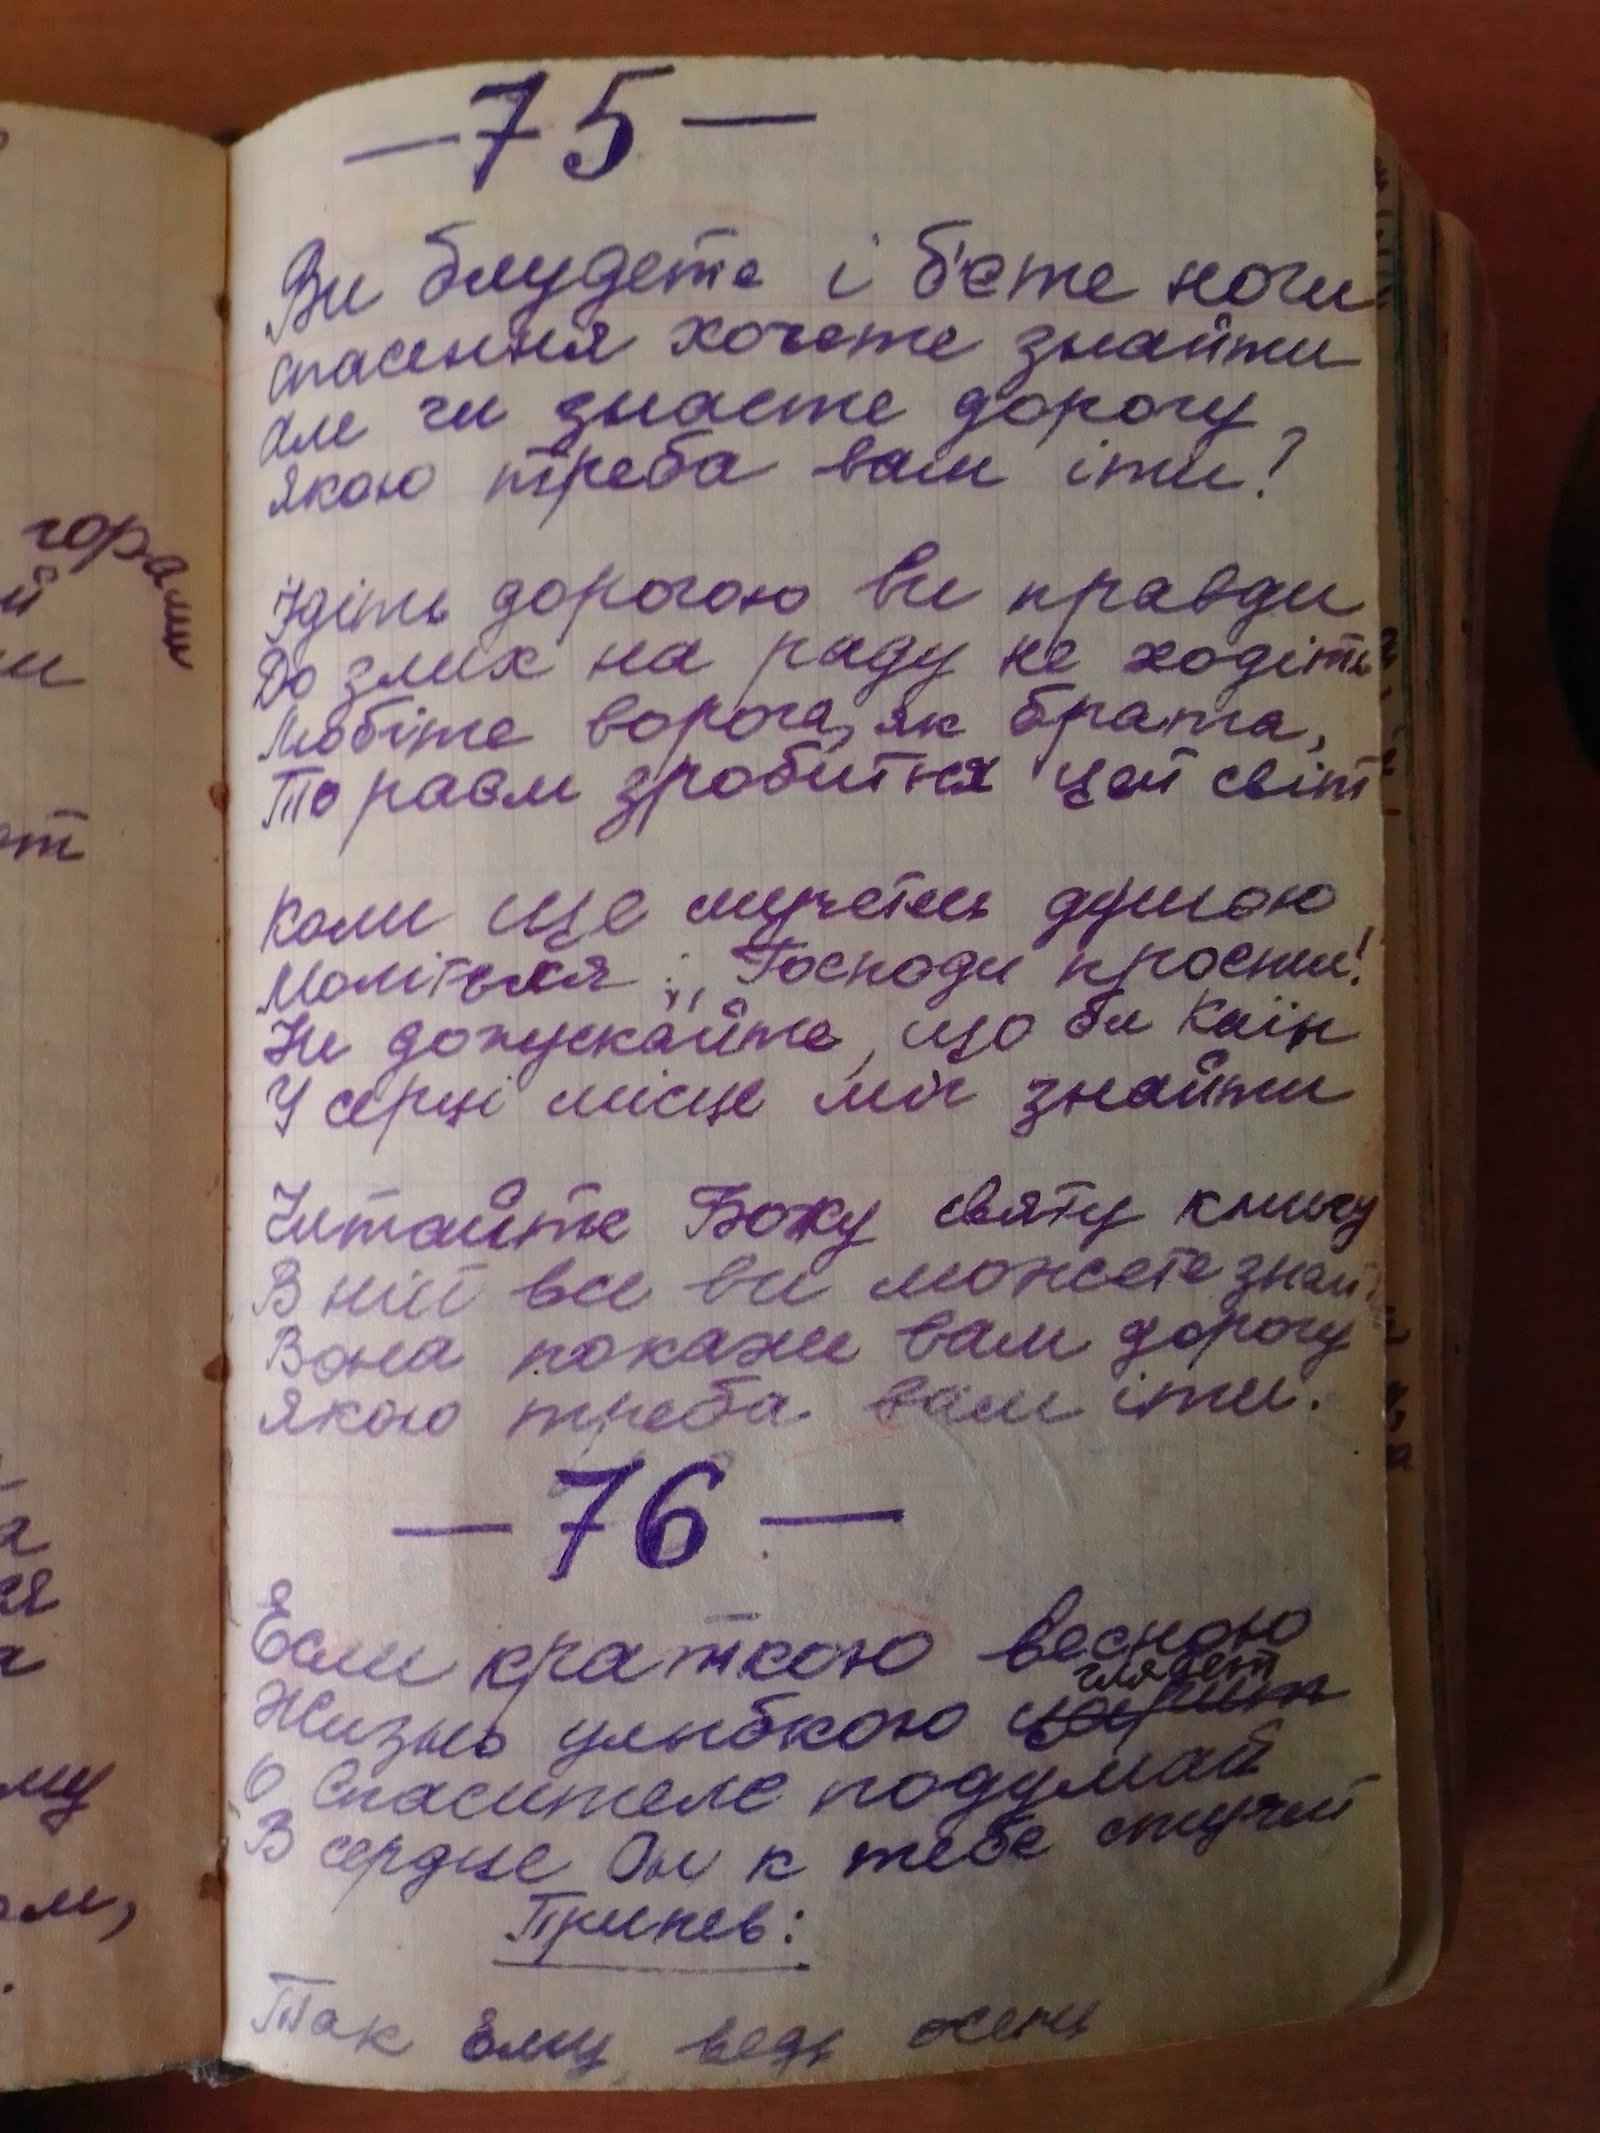 — 75 —
Ви блудете і б'єте ноги
спасення хочете знайти
але чи знаєте дорогу,
якою треба вам іти?
Ідіть дорогою ви правди
До злих на раду не ходіть
Любіте ворога, як брата,
То раєм зробитня цей світ
Коли ще мучетесь душою
Моліться: „Господи прости!
Не допускайте, що би Каїн
У серці місце міг знайти
Читайте Божу святу книгу
В ній все ви можете знайти
Вона покаже вам дорогу
якою треба вам іти.
— 76 —
Если краткою весною
глядет
Жизнь улыбкою царит
О Спасителе подумай
В сердце Он к тебе стучит
Припев:
Так Ему, ведь
горами
й
и
от
а
ся
а
му
ом,